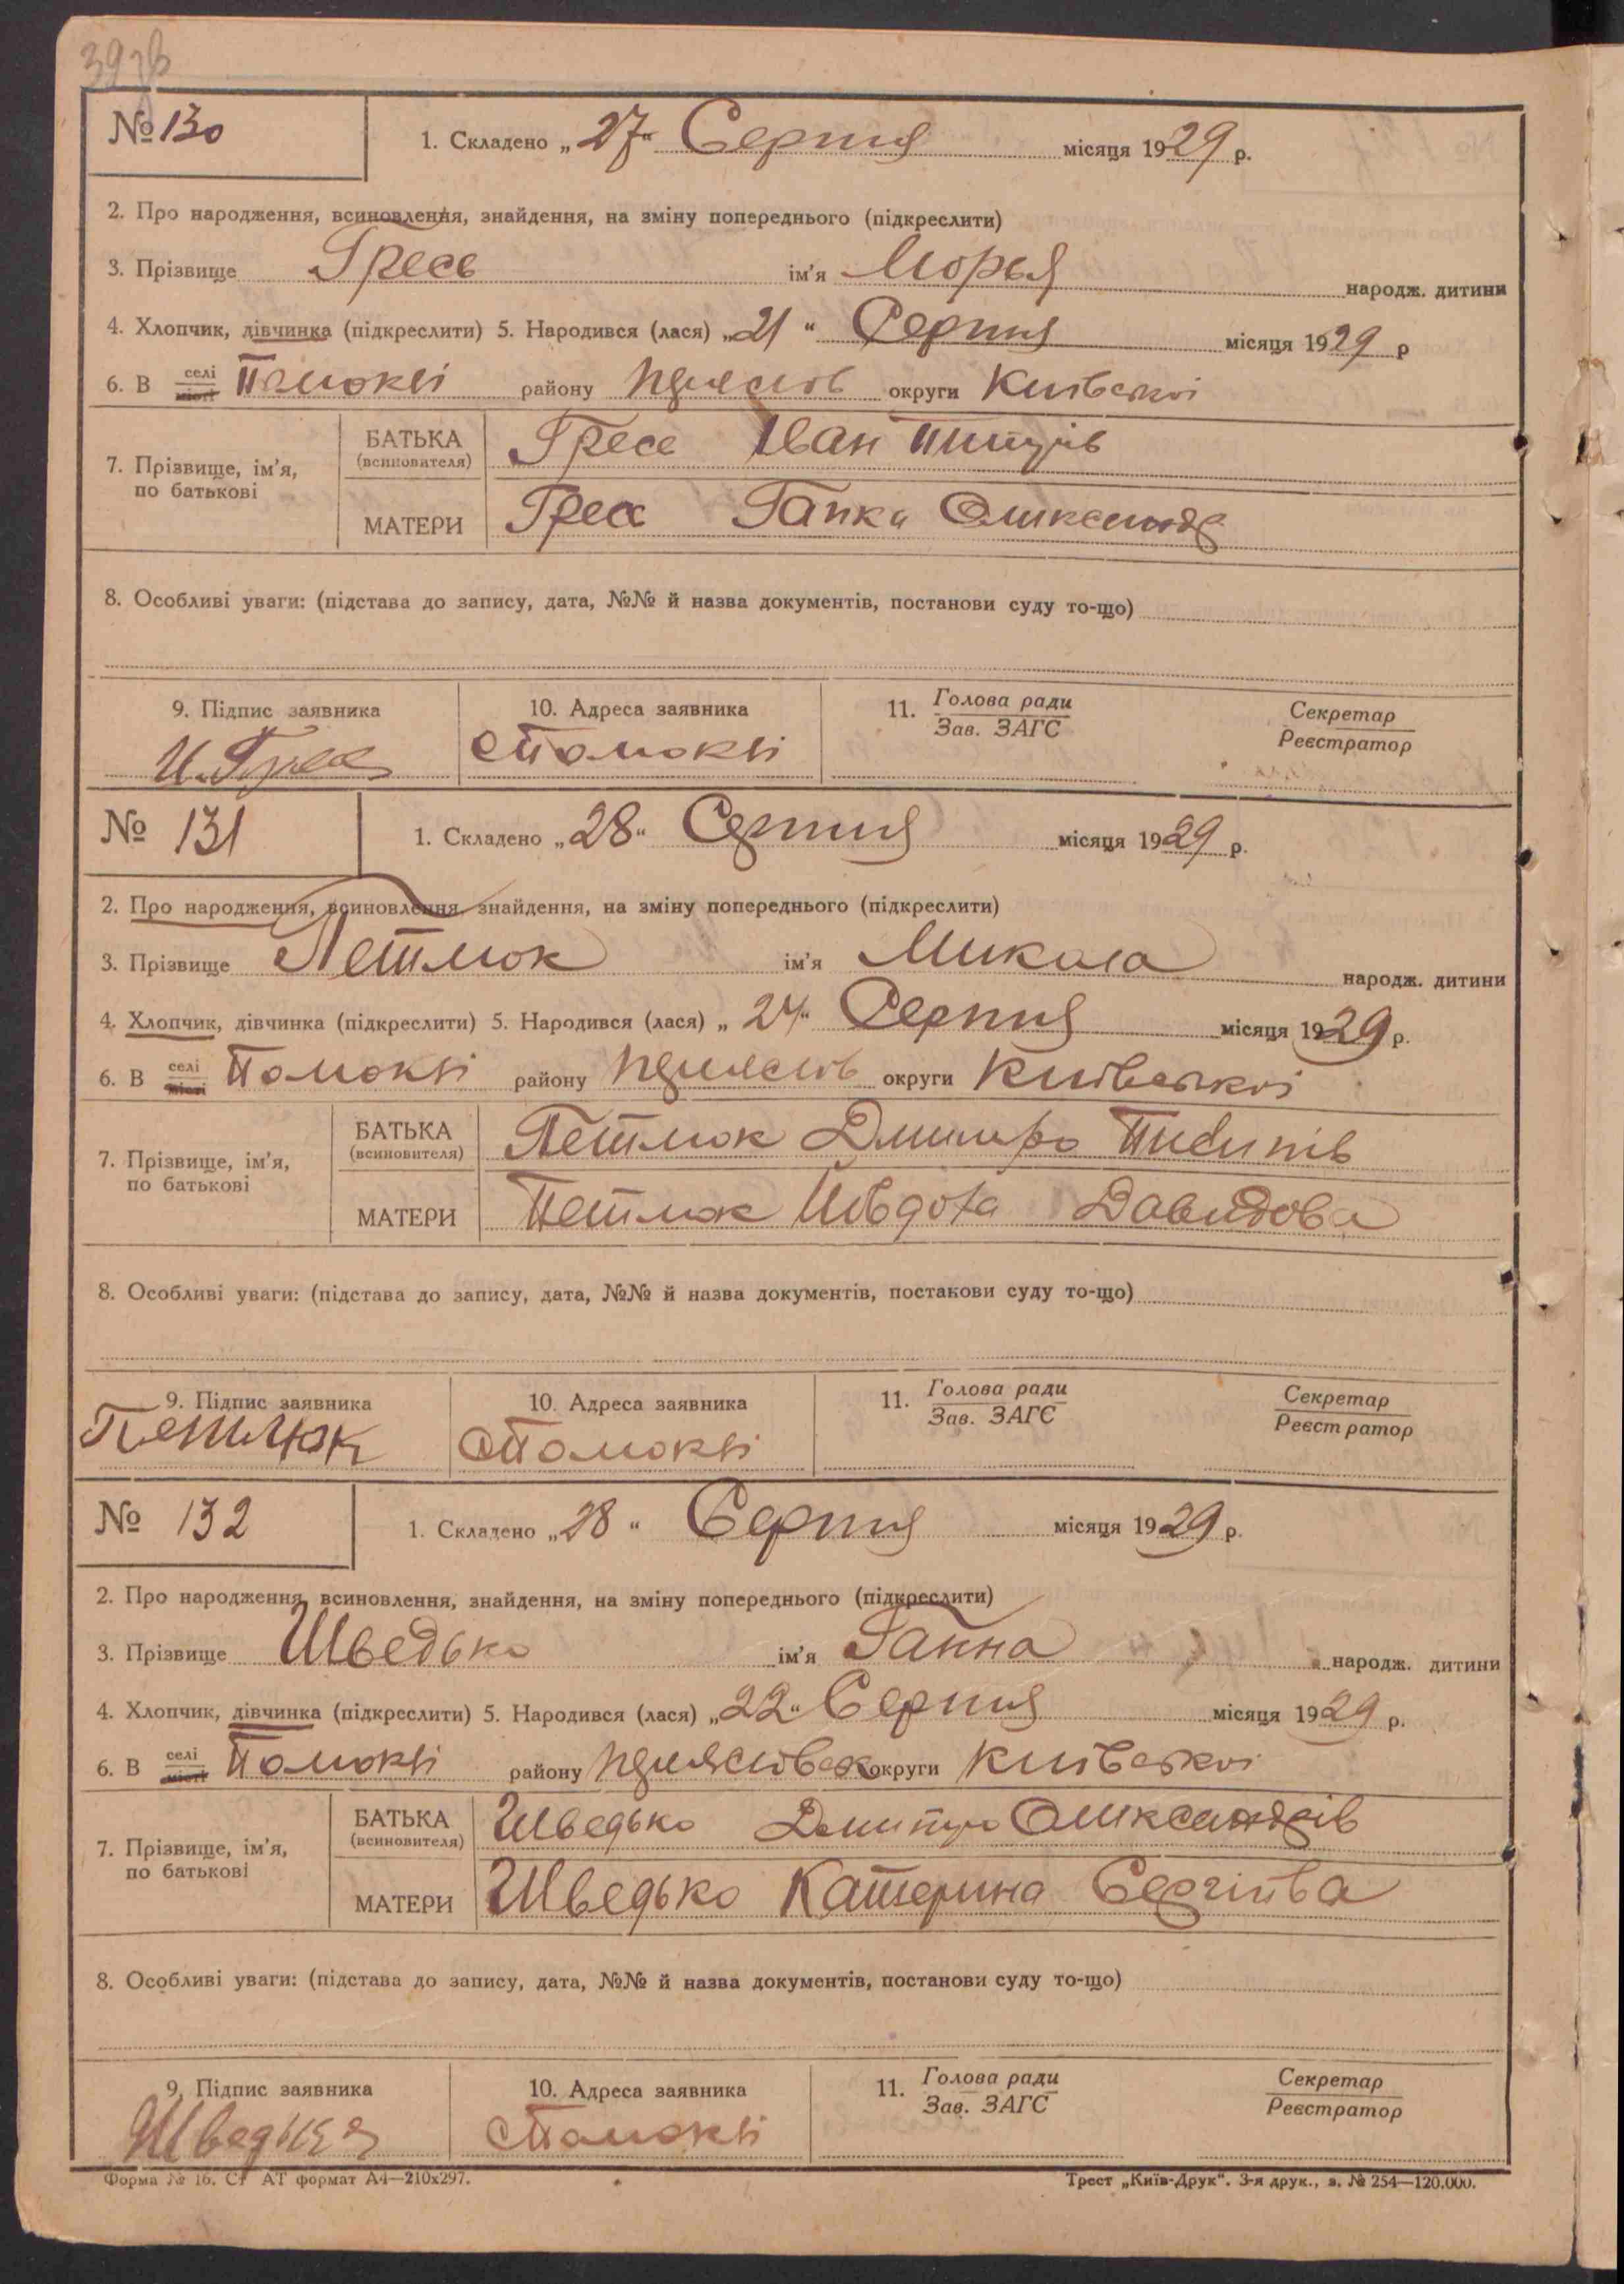 39зв
№ 130
1. Складено „27“ Серпня місяця 1929 р.
2. Про народження, всиновлення, знайдення, на зміну попереднього (підкреслити)
3. Прізвище Гресь ім'я Морья народж. дитини
4. Хлопчик, дівчинка (підкреслити) 5. Народився (лася) „21“ Серпня місяця 1929 р
6. В селі місті Помоклі району округи Київської
7. Прізвище, ім'я, по батькові
БАТЬКА (всиновителя) Гресь Іван
МАТЕРИ Гресь Гапка Олександ
8. Особливі уваги: (підстава до запису, дата, №№ й назва документів, постанови суду то-що)
9. Підпис заявника 10. Адреса заявника 11. Голова ради Секретар
Зав. ЗАГС Реєстратор
И. Гресь с Помоклі
№ 131
1. Складено „28“ Серпня місяця 1929 р.
2. Про народження, всиновлення, знайдення, на зміну попереднього (підкреслити)
3. Прізвище Петлюк ім'я Микола народж. дитини
4. Хлопчик, дівчинка (підкреслити) 5. Народився (лася) „24“ Серпня місяця 1929 р.
6. В селі місті Помоклі району округи Київської
7. Прізвище, ім'я, по батькові
БАТЬКА (всиновителя) Петлюк Дмитро
МАТЕРИ Петлюк Ивдоха Давидова
8. Особливі уваги: (підстава до запису, дата, №№ й назва документів, постанови суду то-що)
9. Підпис заявника 10. Адреса заявника 11. Голова ради Секретар
Зав. ЗАГС Реєстратор
Петлюк с Помоклі
№ 132
1. Складено „28“ Серпня місяця 1929 р.
2. Про народження, всиновлення, знайдення, на зміну попереднього (підкреслити)
3. Прізвище Шведько ім'я Ганна народж. дитини
4. Хлопчик, дівчинка (підкреслити) 5. Народився (лася) „22“ Серпня місяця 1929 р.
6. В селі місті Помоклі району округи Київської
7. Прізвище, ім'я, по батькові
БАТЬКА (всиновителя) Шведько Дмитро Олександрів
МАТЕРИ Шведько Катерина Сергіїва
8. Особливі уваги: (підстава до запису, дата, №№ й назва документів, постанови суду то-що)
9. Підпис заявника 10. Адреса заявника 11. Голова ради Секретар
Зав. ЗАГС Реєстратор
с Помоклі
Форма № 16. Ст АТ формат А4—210х297. Трест „Київ-Друк“. 3-я друк., з. № 254—120.000.